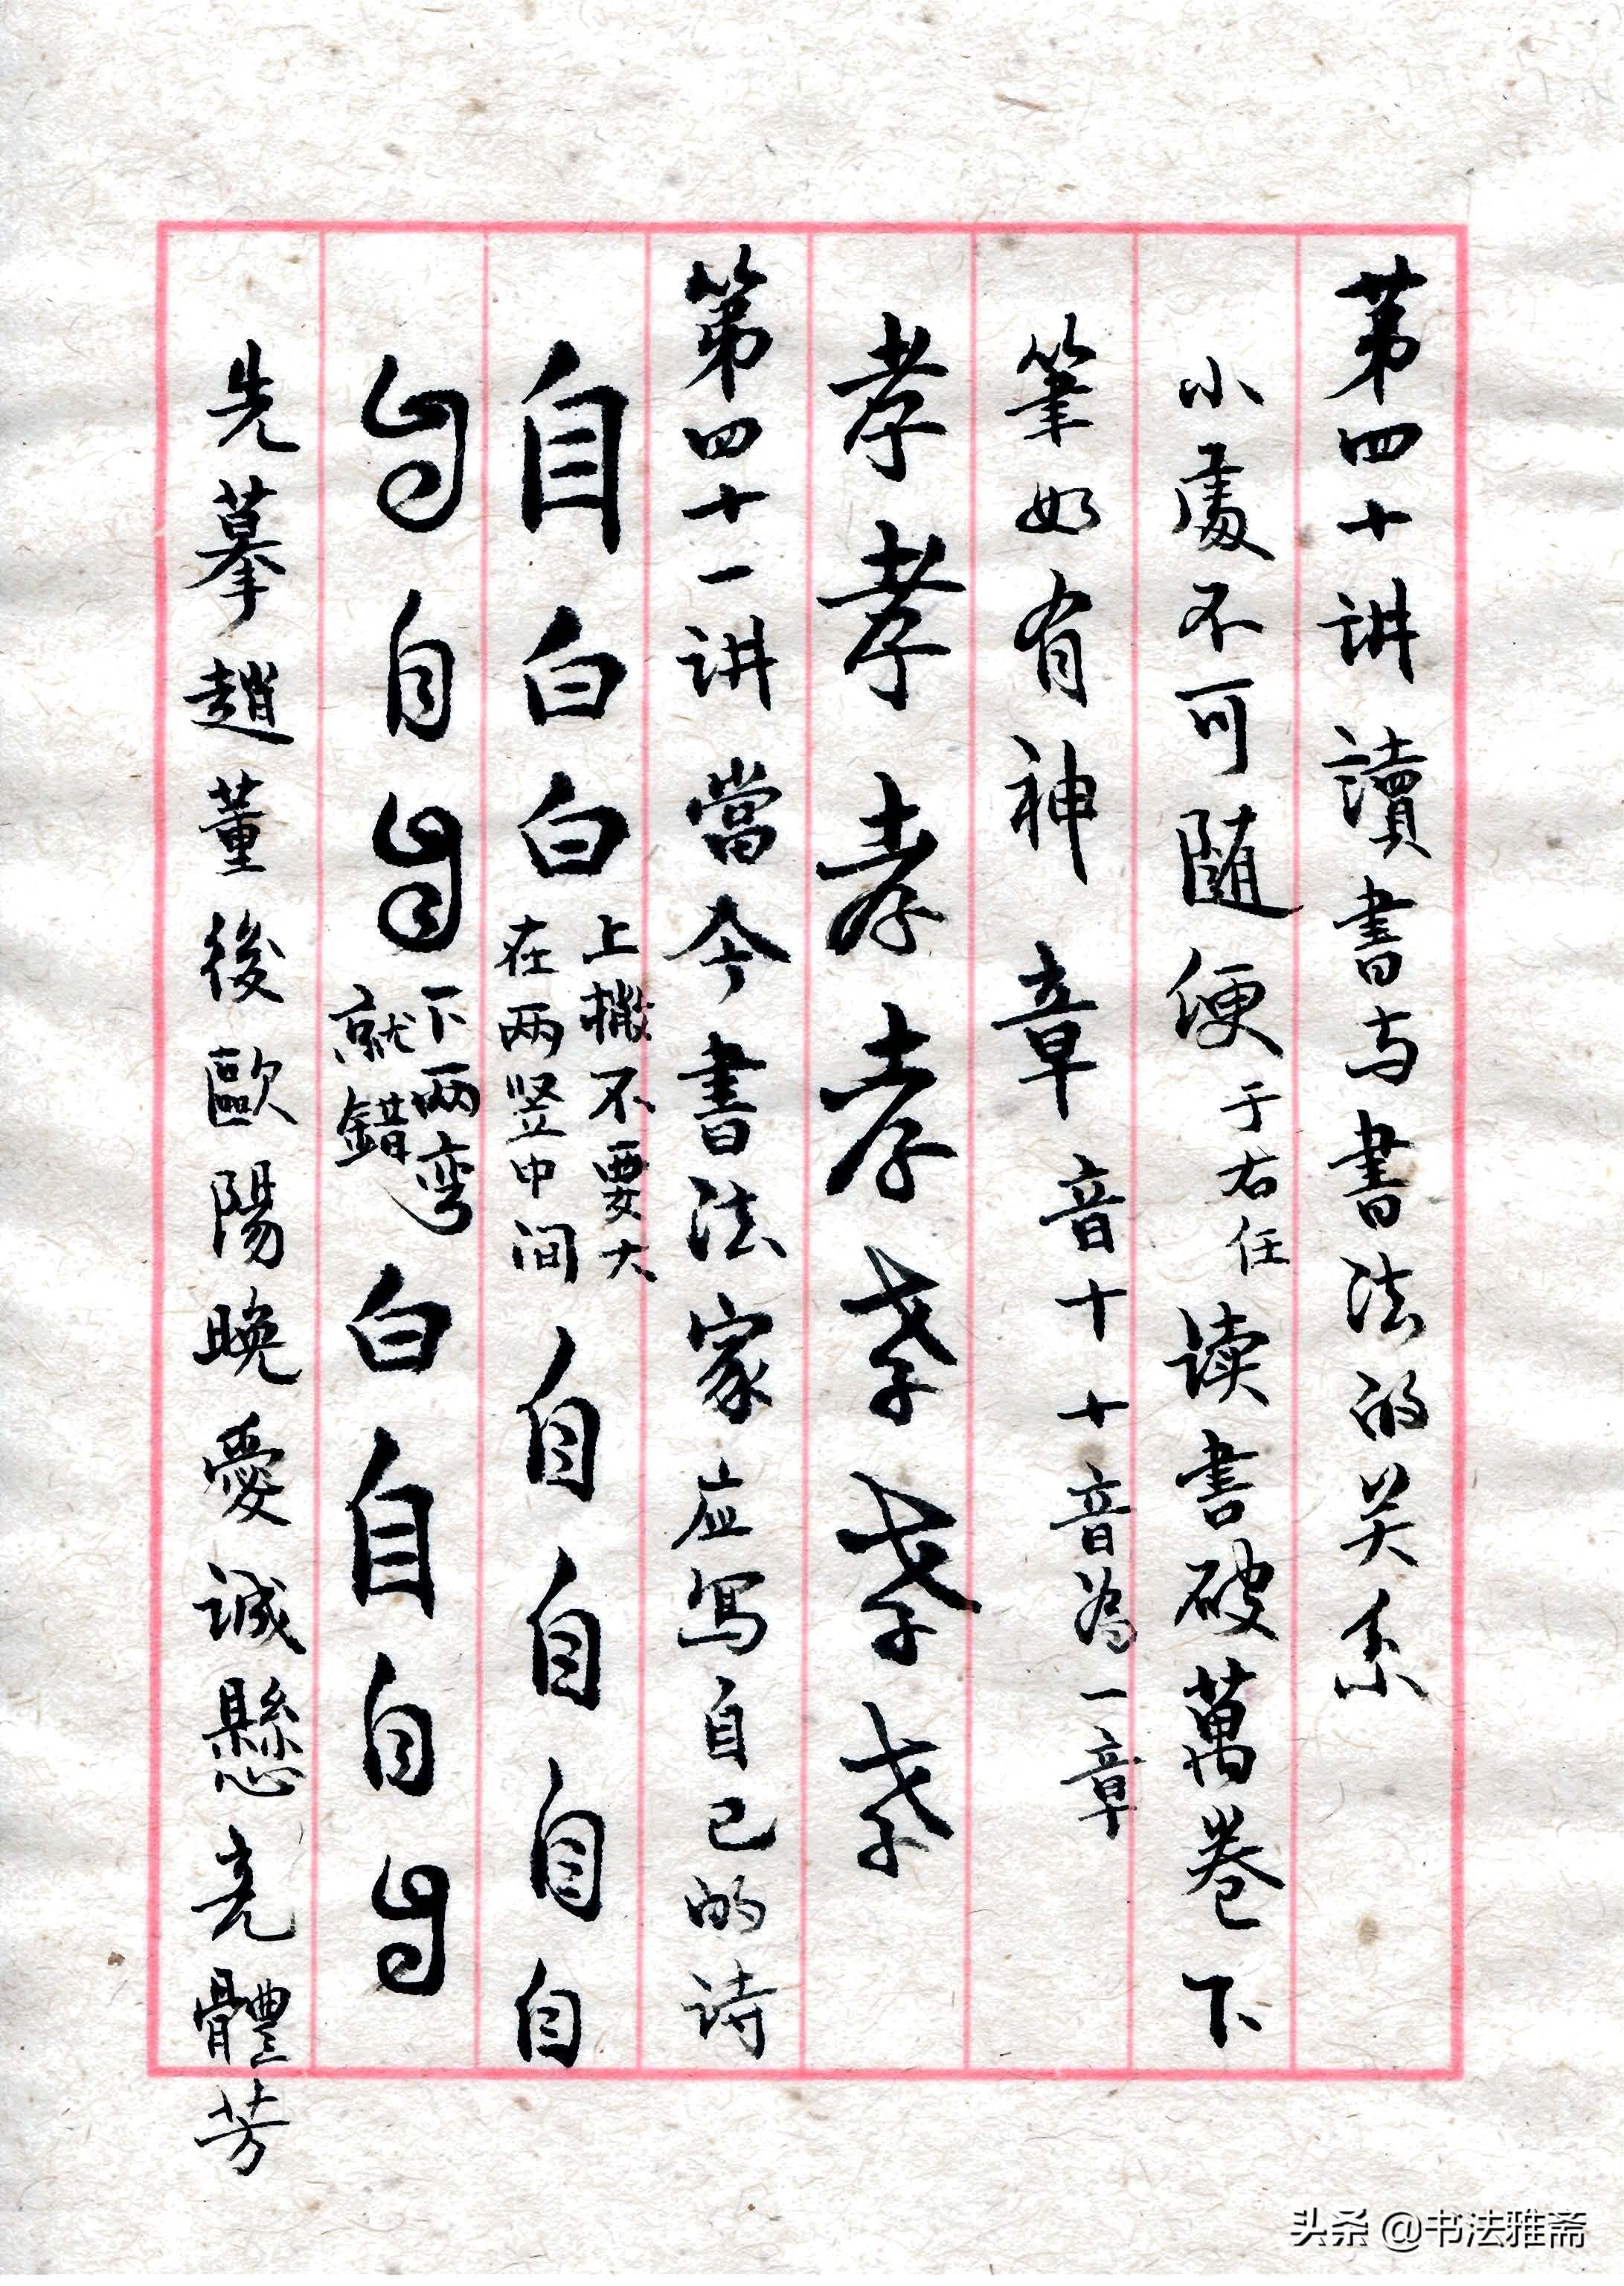 第四十讲 讀書与書法的关系
小處不可随便 于右任 读书破萬卷下
筆如有神 章 音十 十音為一章
孝孝孝孝孝孝孝
第四十一讲 當今書法家应写自己的诗
自白白 上撇不要大
在两竖中间 自自自自
自自自 下两弯
就错 白自自自
先摹趙董後歐陽晚愛诚懸亮體芳
头条 @书法雅斋